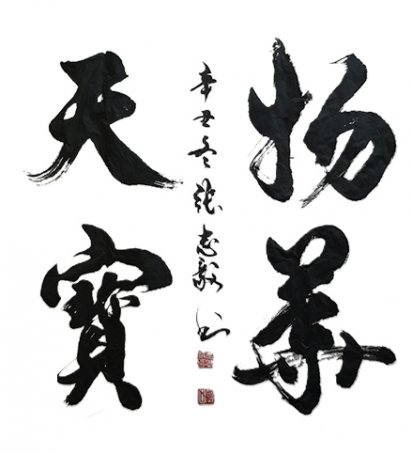 物華
天寶
辛丑冬張志毅書